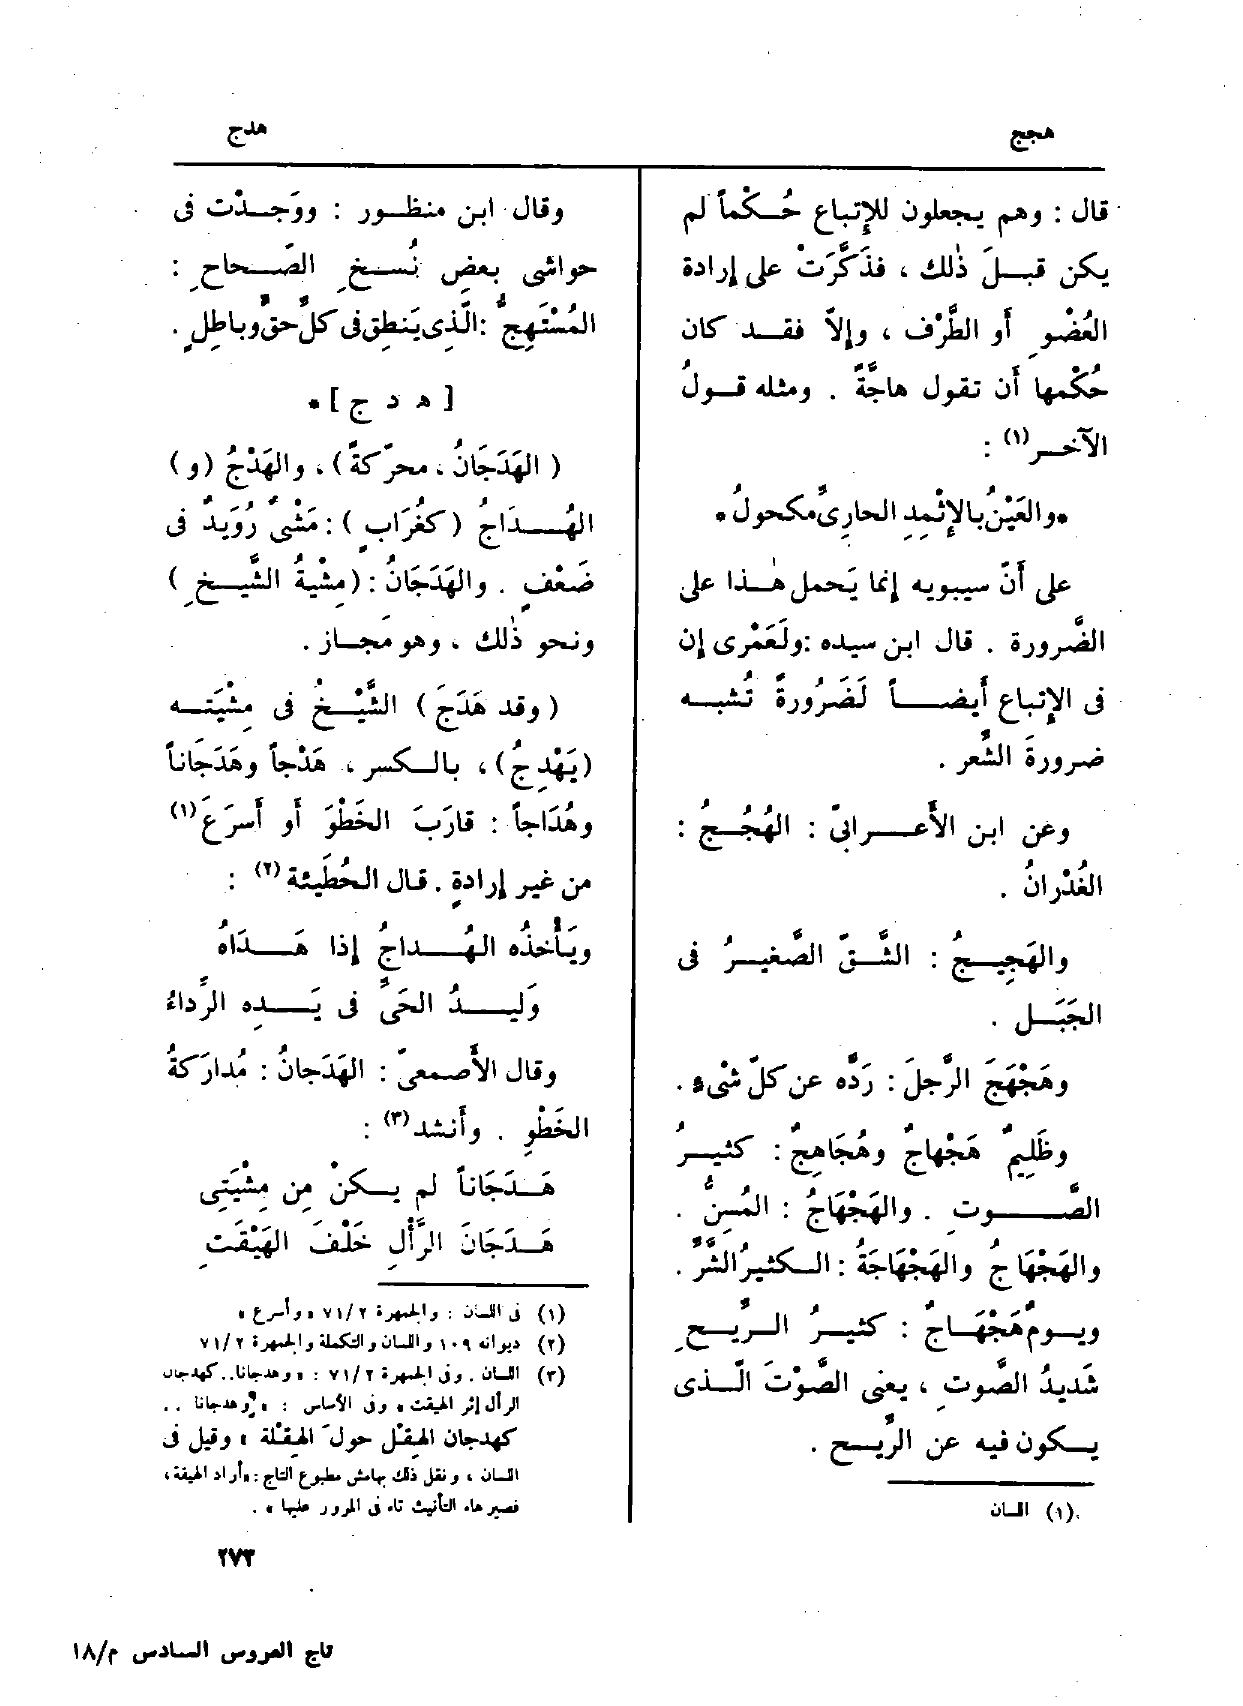 هجج
هدج
قال : وهم يجعلون للإتباع حُكْماً لم
يكن قبلَ ذٰلك ، فذَكَّرَتْ على إرادة
العُضْوِ أو الطَّرْف ، وإلاّ فقد كان
حُكْمها أن تقول هاجَّةً . ومثله قولُ
الآخر(١) :
*والعَيْنُ بالإثْمِدِ الحارِيِّ مكحولُ*
على أَنّ سيبويه إنما يَحمل هٰذا على
الضَّرورة . قال ابن سيده : ولَعَمْرى إن
فى الإتباع أيضاً لَضَرُورةً تُشبه
ضرورةَ الشِّعر .
وعن ابن الأَعرابىّ : الهُجُجُ :
الغُدْرانُ .
والهَجِيجُ : الشَّقّ الصَّغيرُ فى
الجَبَل .
وهَجْهَجَ الرَّجلَ : رَدَّه عن كلّ شْىءٍ .
وظَلِيمٌ هَجْهاجٌ وهُجَاهِجٌ : كثيرُ
الصَّوت . والهَجْهَاجُ : المُسِنُّ .
والهَجْهَاجُ والهَجْهَاجَةُ : الكثيرُ الشَّرِّ .
ويومٌ هَجْهَاجٌ : كثيرُ الرِّيحِ
شَديدُ الصَّوتِ ، يعنى الصَّوْتَ الَّذى
يكون فيه عن الرِّيح .
(١) اللسان
وقال ابن منظور : ووَجدْت فى
حواشى بعضِ نُسخِ الصّحاحِ :
المُسْتَهِجُّ : الَّذِى يَنطِق فى كلِّ حقٍّ وباطِلٍ .
[ ه د ج ] *
( الهَدَجَانُ ، محرّكةً ) ، والهَدْجُ (و)
الهُدَاجُ ( كغُرَابٍ ) : مَشْىٌ رُوَيدٌ فى
ضَعْفٍ . والهَدَجَانُ : (مِشْيةُ الشَّيخِ )
ونحو ذٰلك ، وهو مَجاز .
( وقد هَدَجَ ) الشَّيْخُ فى مِشْيَته
(يَهْدِجُ) ، بالكسر ، هَدْجاً وهَدَجَاناً
وهُدَاجاً : قارَبَ الخَطْوَ أو أَسرَعَ(١)
من غير إرادةٍ . قال الحُطَيئة(٢) :
ويَأْخذُه الهُداجُ إذا هَدَاهُ
وَليدُ الحَىِّ فى يَدِه الرِّداءُ
وقال الأَصمعىّ : الهَدَجانُ : مُدارَكةُ
الخَطْوِ . وأَنشد(٣) :
هَدَجَاناً لم يكنْ مِن مِشْيَتِى
هَدَجَانَ الرَّأْلِ خَلْفَ الهَيْقَتِ
(١) فى اللسان : والجمهرة ٧١/٢ « وأسرع »
(٢) ديوانه ١٠٩ واللسان والتكملة والجمهرة ٧١/٢
(٣) اللسان . وفى الجمهرة ٧١/٢ : « وهدجانا.. كهدجان
الرأل إثر الهيقت » وفى الأساس : « وهدجانا ..
كهدجان الهِقْل حولَ الهِقْلة » وقيل فى
اللسان ، ونقل ذلك بهامش مطبوع التاج : «أراد الهيقة ،
فصير هاء التأنيث تاء فى المرور عليها » .
٢٧٣
تاج العروس السادس م/١٨